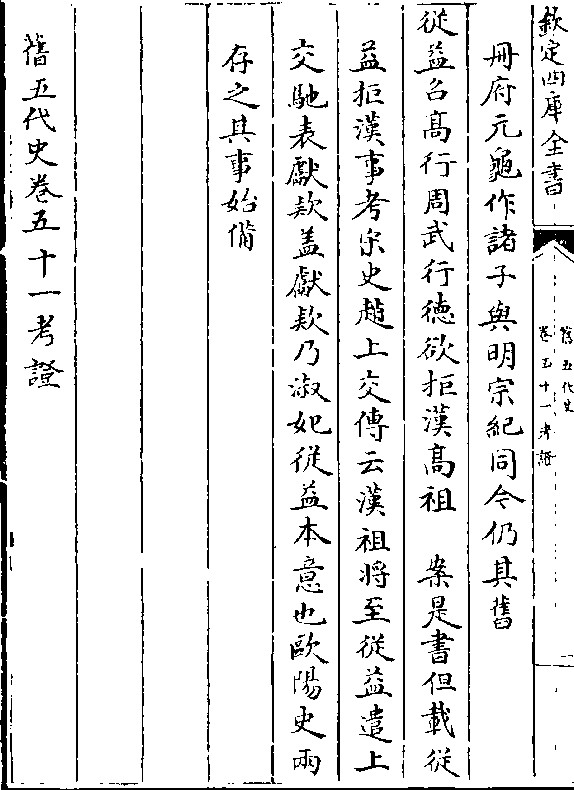 欽定四庫全書
舊五代史
卷五十一考證
二
冊府元龜作諸子與明宗紀同今仍其舊
從益召髙行周武行徳欲拒漢髙祖　案是書但載從
益拒漢事考宋史趙上交傳云漢祖將至從益遣上
交馳表獻欵盖獻欵乃淑妃從益本意也歐陽史兩
存之其事始備
舊五代史卷五十一考證